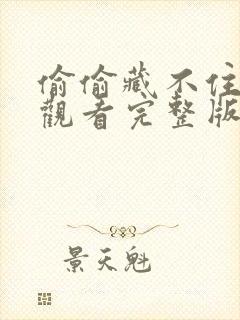 偷偷藏不住
觀看完整版
景天魁